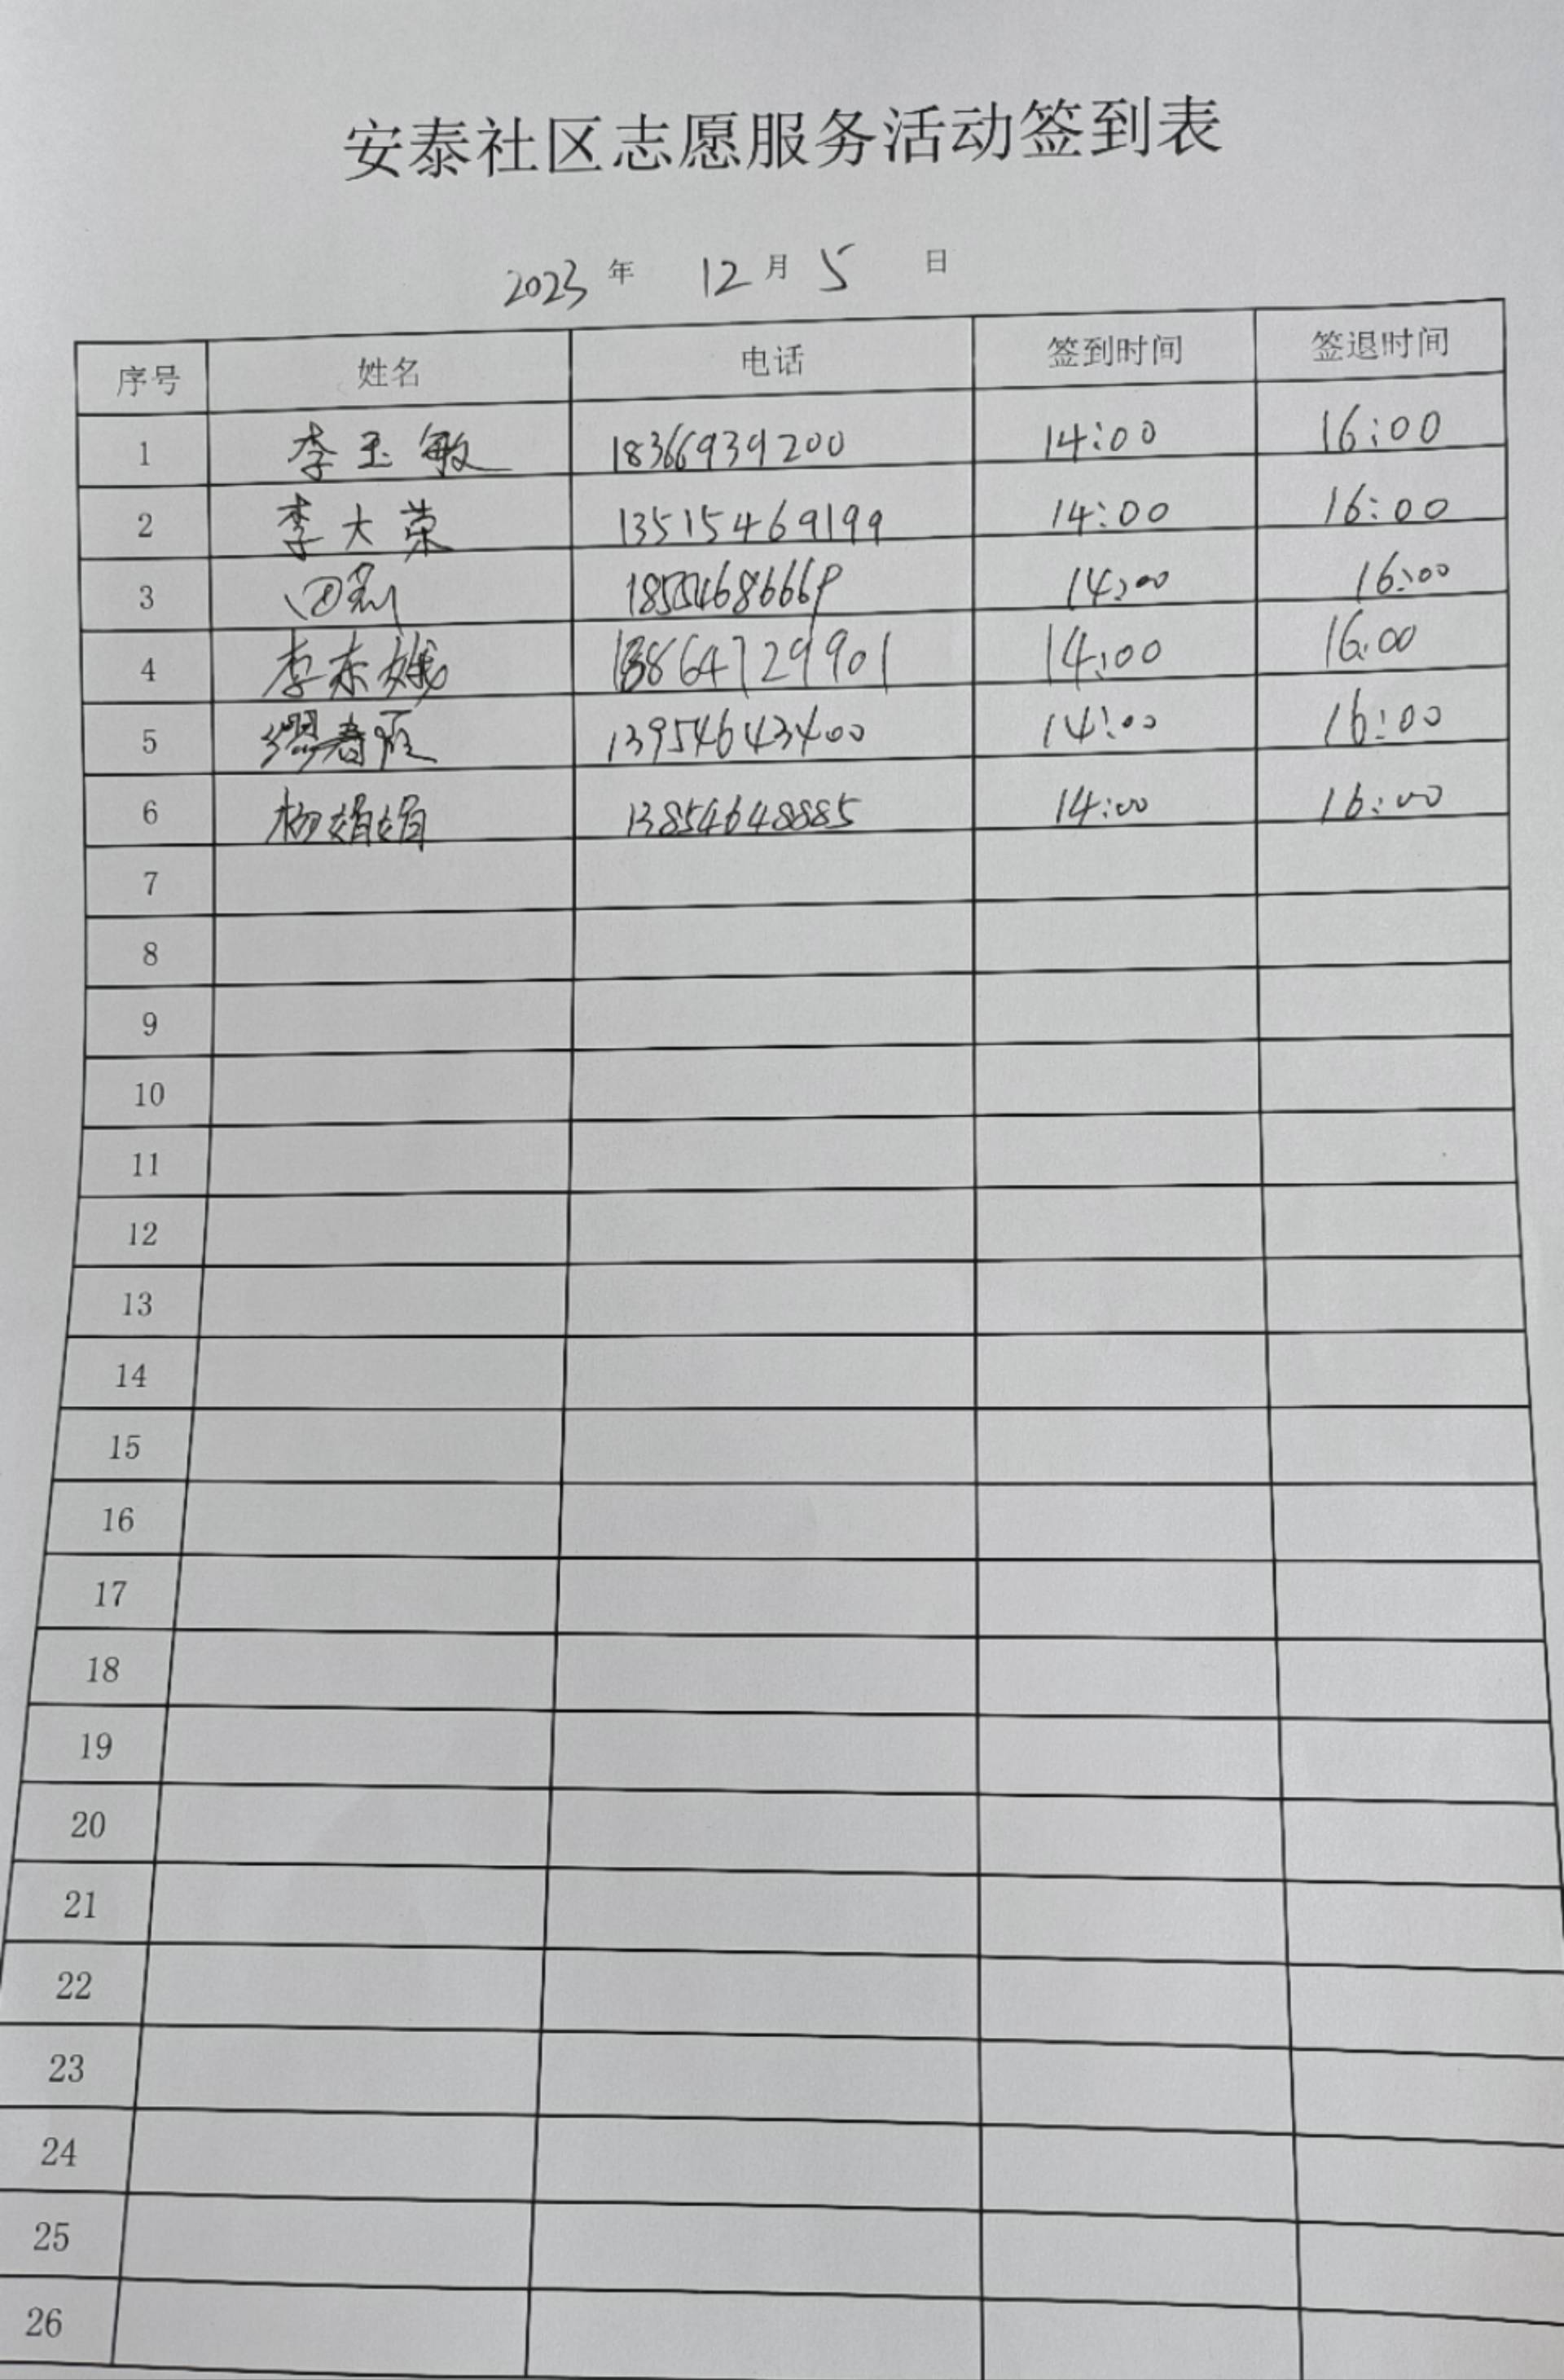 安泰社区志愿服务活动签到表
2023 年 12 月 5 日
序号 姓名 电话 签到时间 签退时间
1 李玉敏 18366939200 14:00 16:00
2 李大荣 13515469199 14:00 16:00
3 14:00 16:00
4 李东娥 13864729901 14:00 16:00
5 缪春 13954643400 14:00 16:00
6 杨娟娟 13854648885 14:00 16:00
7
8
9
10
11
12
13
14
15
16
17
18
19
20
21
22
23
24
25
26